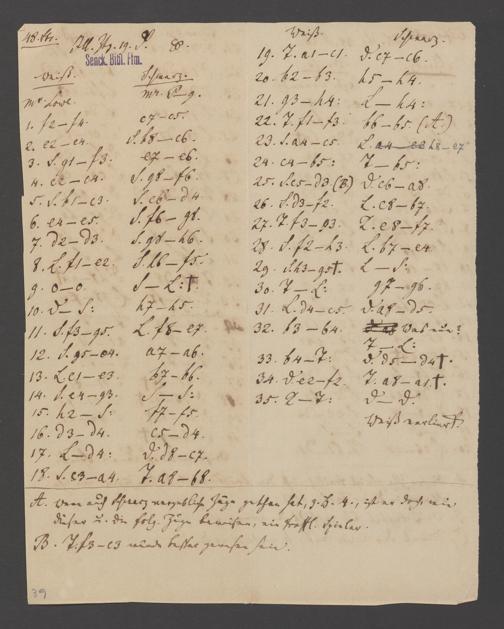 48. Str.
Senck. Bibl. Ffm.
Weiß. Schwarz.
Mr. Lowe. Mr. P–g.
1. f2–f4. c7–c5.
2. e2–e4. S.b8–c6.
3. S.g1–f3. e7–e6.
4. c2–c4. S.g8–f6.
5. S.b1–c3. S.c6–d4.
6. e4–e5. S.f6–g8.
7. d2–d3. S.g8–h6.
8. L.f1–e2. S.h6–f5.
9. 0–0. S–L:†
10. D–S: h7–h5.
11. S.f3–g5. L.f8–e7.
12. S.g5–e4. a7–a6.
13. L.c1–e3. b7–b6.
14. S.e4–g3. S–S:
15. h2–S: f7–f5.
16. d3–d4. c5–d4.
17. L–d4: D.d8–c7.
18. S.c3–a4. T.a8–b8.
Weiß Schwarz.
19. T.a1–c1. D.c7–c6.
20. b2–b3. h5–h4.
21. g3–h4: L–h4:
22. T.f1–f3. b6–b5 (A.)
23. S.a4–c5. L. h8–e7
24. c4–b5: T–b5:
25. S.c5–d3 (B) D.c6–a8
26. S.d3–f2. L.c8–b7.
27. T.f3–g3. K.e8–f7.
28. S.f2–h3. L.b7–e4.
29. S.h3–g5†. L–S:
30. T–L: g7–g6.
31. L.d4–c5. D.a8–d5.
32. b3–b4. Was nun?
T–L:
33. b4–T: D.d5–d4†.
34. D.e2–f2. T.a8–a1.†
35. K–T: D–D.
Weiß verliert
A. wenn auch Schwarz vergeblich Züge gethan hat, z.B. 4., ist er doch, wie
dieser u. die folg. Züge beweisen, ein treffl. Spieler.
B. T.f3–c3 würde besser gewesen sein.
39